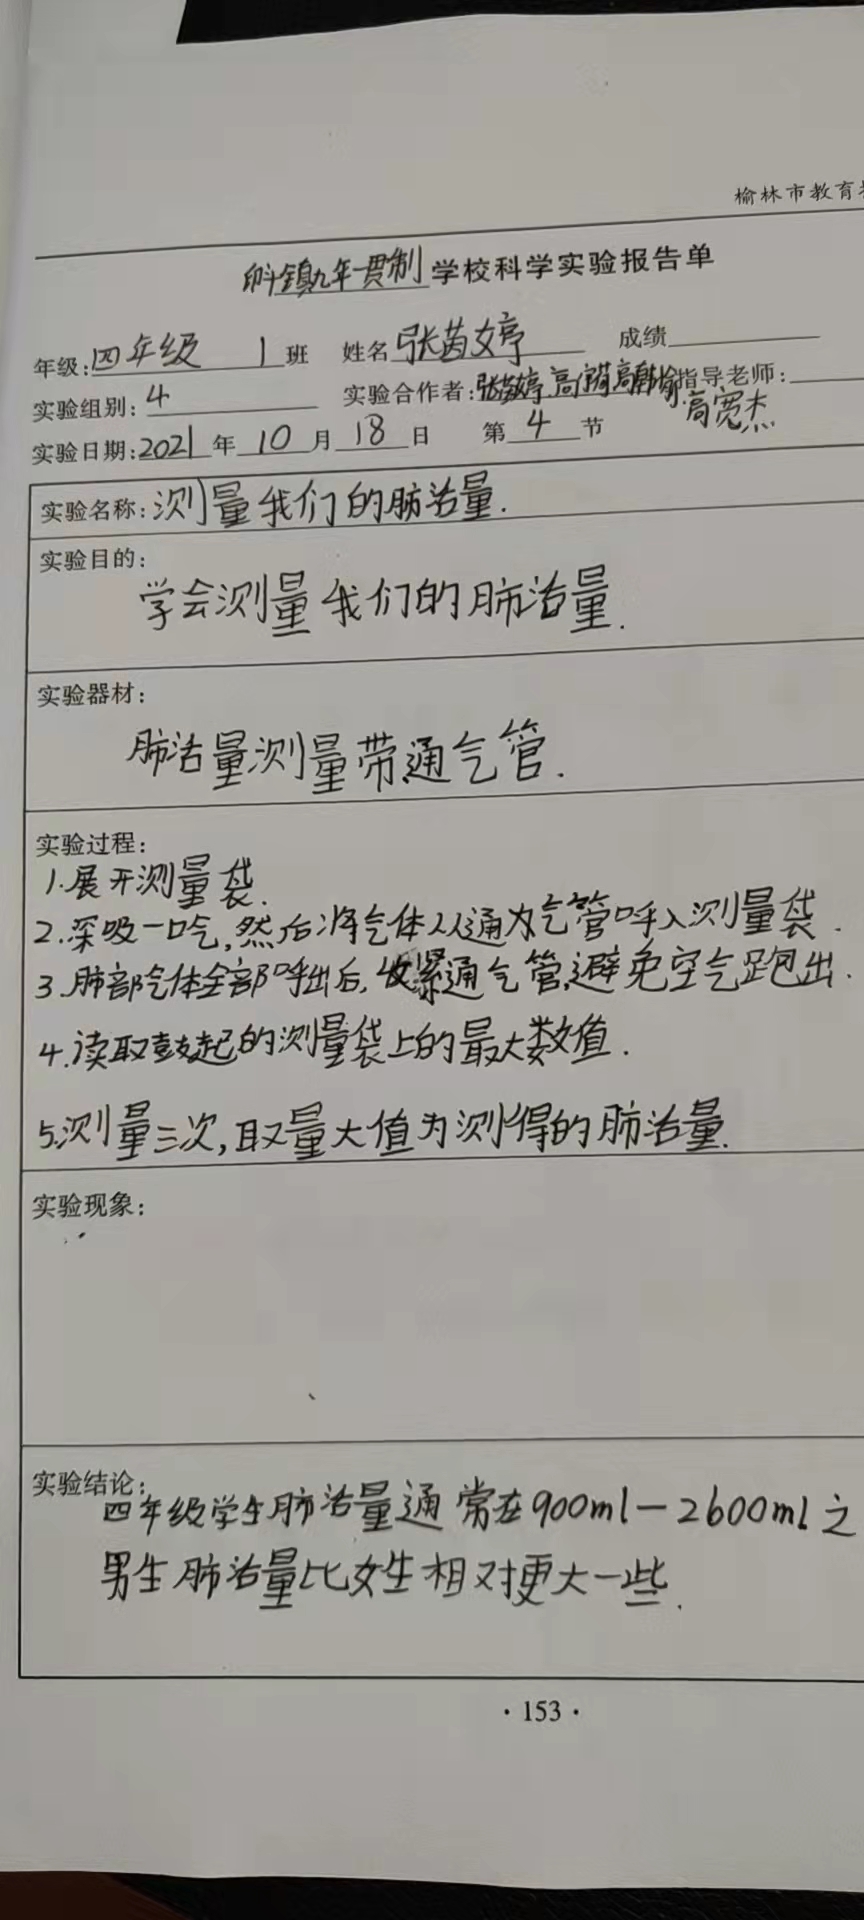 榆林市教育
镇九年一贯制学校科学实验报告单
年级:四年级 1班 姓名 张茵婷 成绩
实验组别:4 实验合作者: 指导老师:
高宽杰
实验日期:2021年10月18日 第4节
实验名称:测量我们的肺活量.
实验目的:
学会测量我们的肺活量.
实验器材:
肺活量测量带通气管.
实验过程:
1.展开测量袋.
2.深吸一口气,然后将气体从通气管呼入测量袋.
3.肺部气体全部呼出后,收紧通气管,避免空气跑出.
4.读取鼓起的测量袋上的最大数值.
5.测量三次,取量大值为测得的肺活量.
实验现象:
实验结论:
四年级学生肺活量通常在900ml-2600ml之
男生肺活量比女生相对更大一些.
·153·